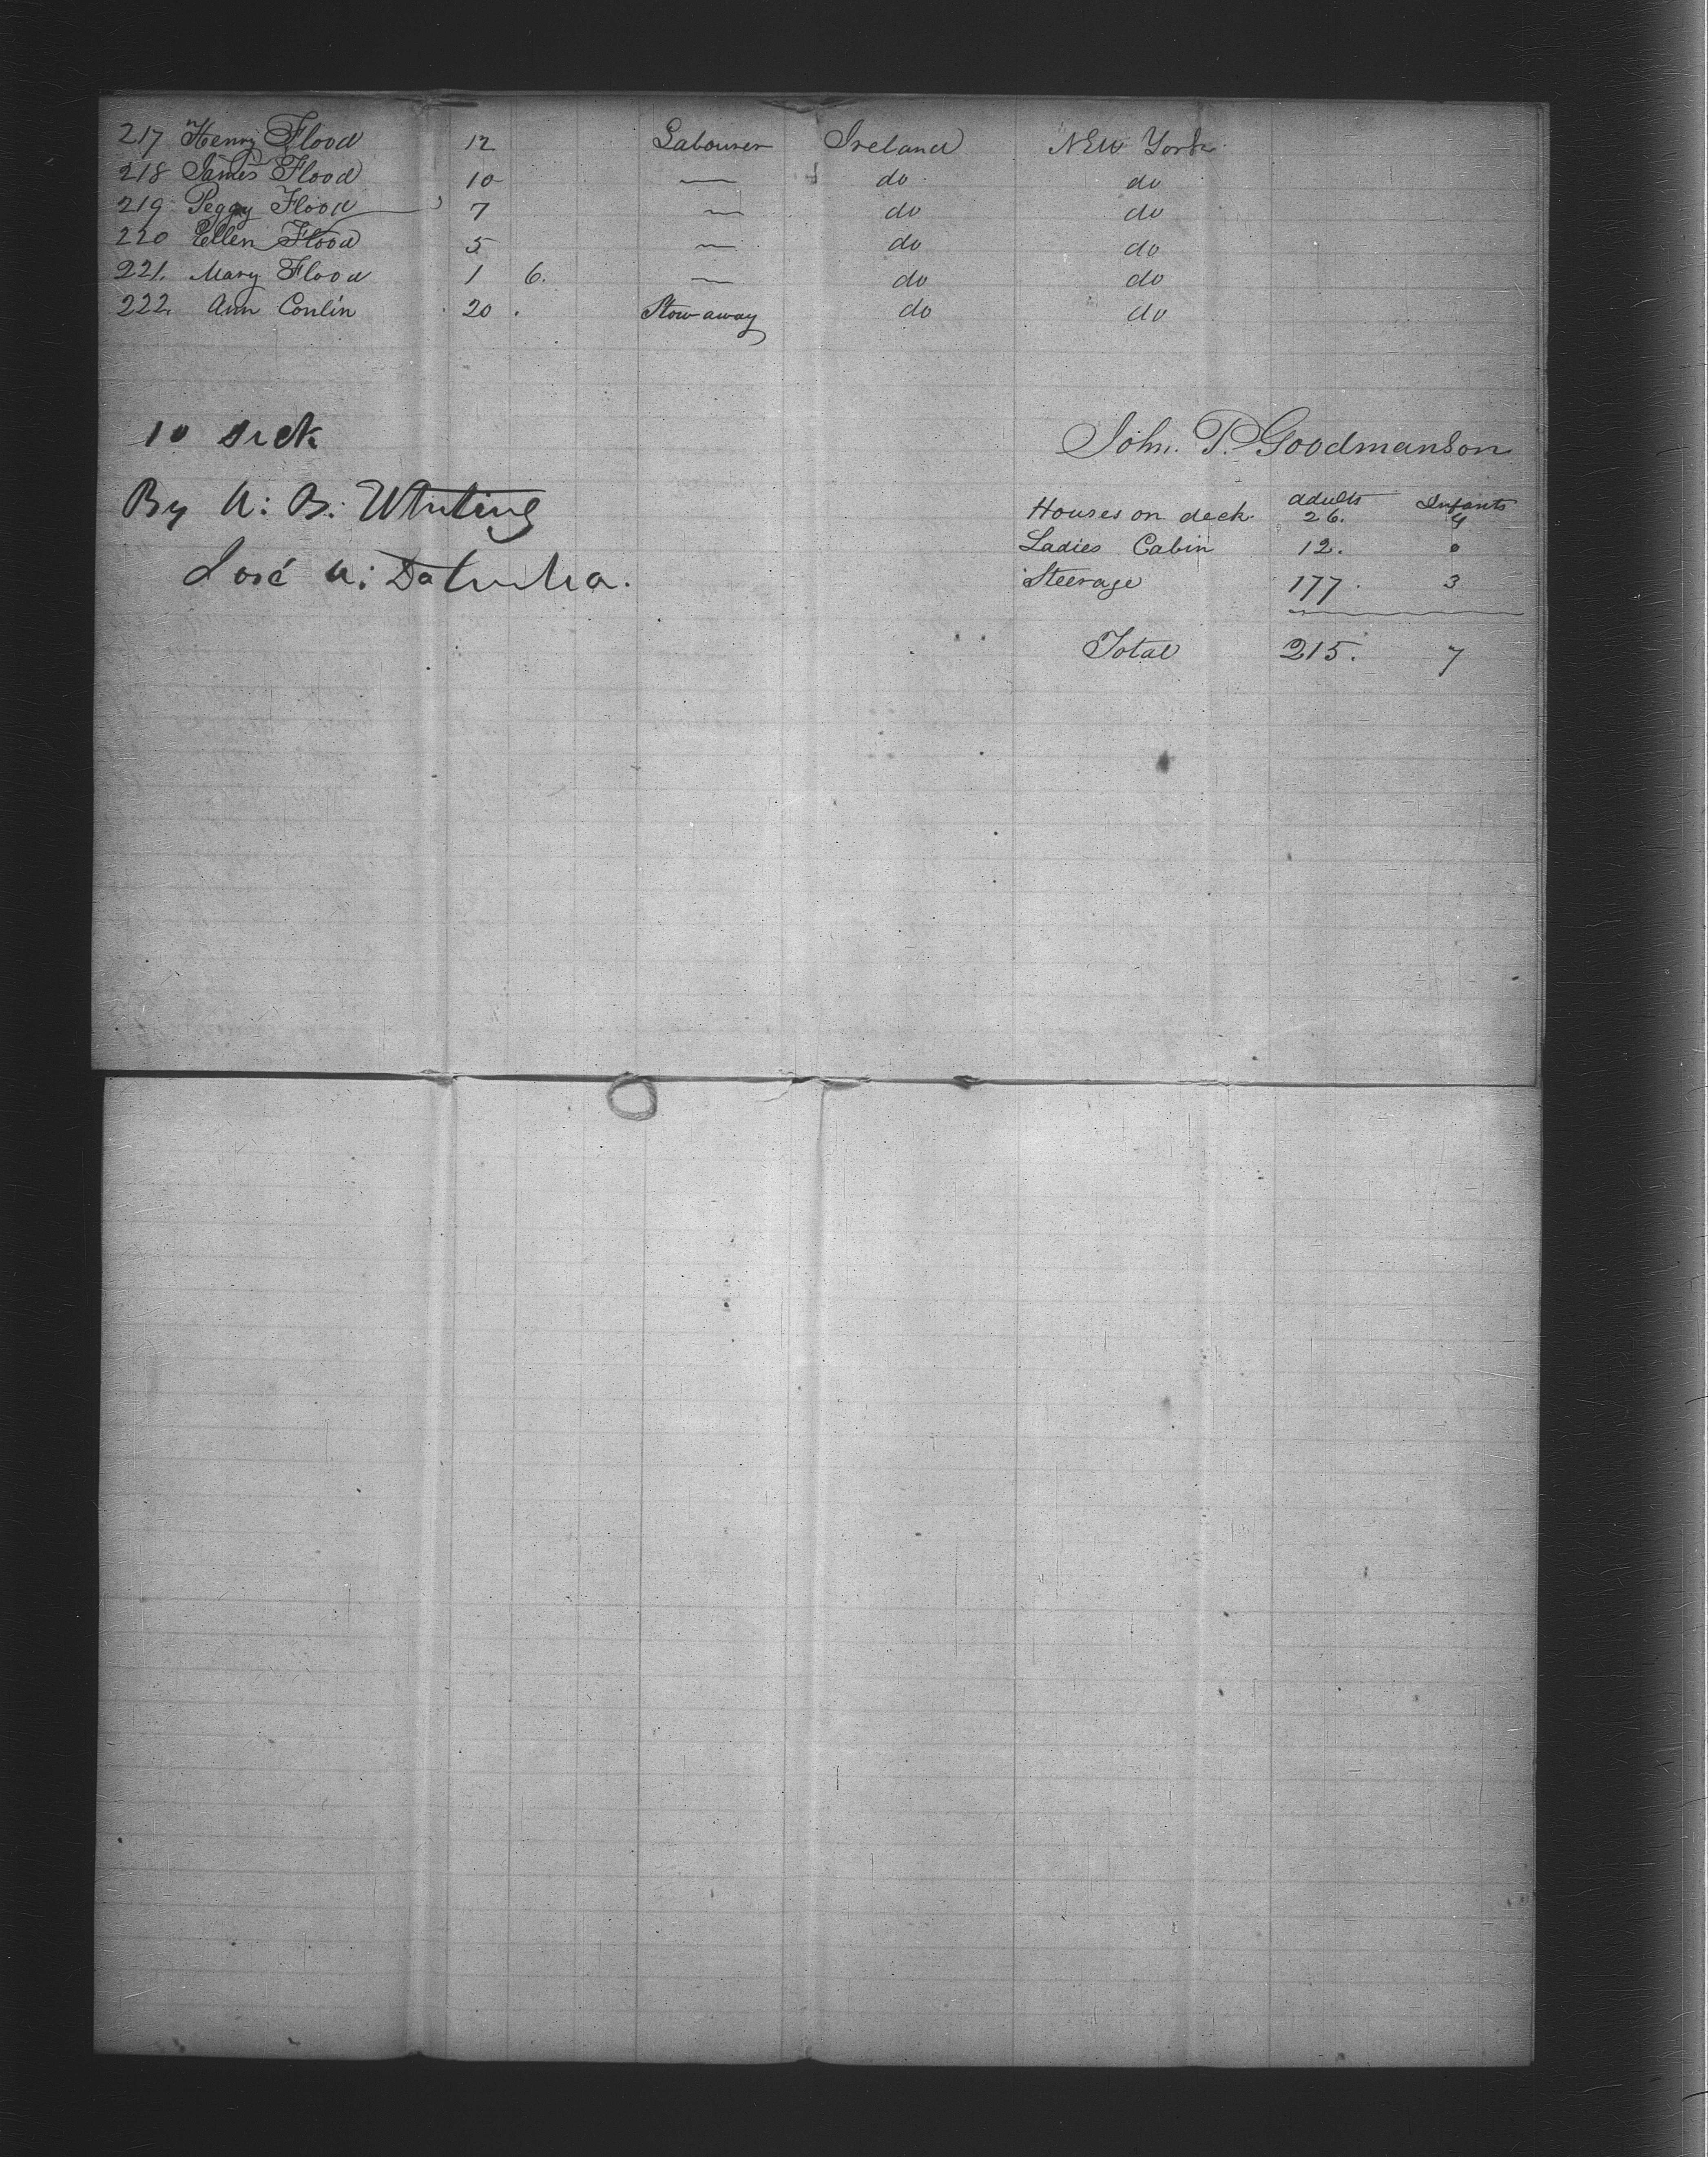 217 Henry Flood 12 Labourer Ireland New York
218 James Flood 10 — do do
219 Peggy Flood 7 — do do
220 Ellen Flood 5 — do do
221. Mary Flood 1 6. — do do
222. Ann Conlin 20 . Stow away do do
10 sick
By A: B: Whiting
José A:
John. P. Goodmanson
adults Infants
Houses on deck. 26. 4
Ladies Cabin 12. 0
Steerage 177. 3
Total 215. 7